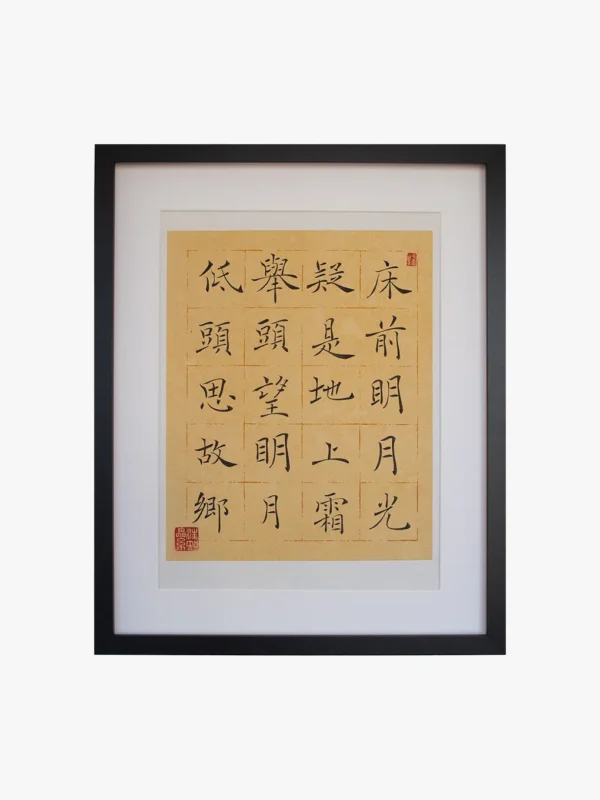 床前眀月光
疑是地上霜
舉頭望眀月
低頭思故鄉